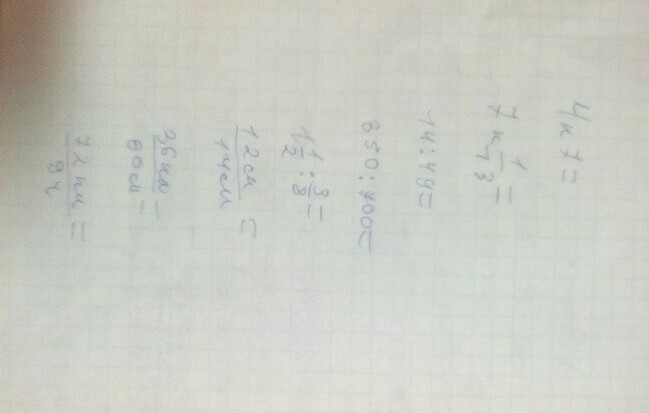 4 к 7 =
7 к 1/13 =
14 : 49 =
850 : 700 =
1 1/2 : 3/8 =
12 см / 14 см =
36 км / 60 см =
72 км / 9 ч =